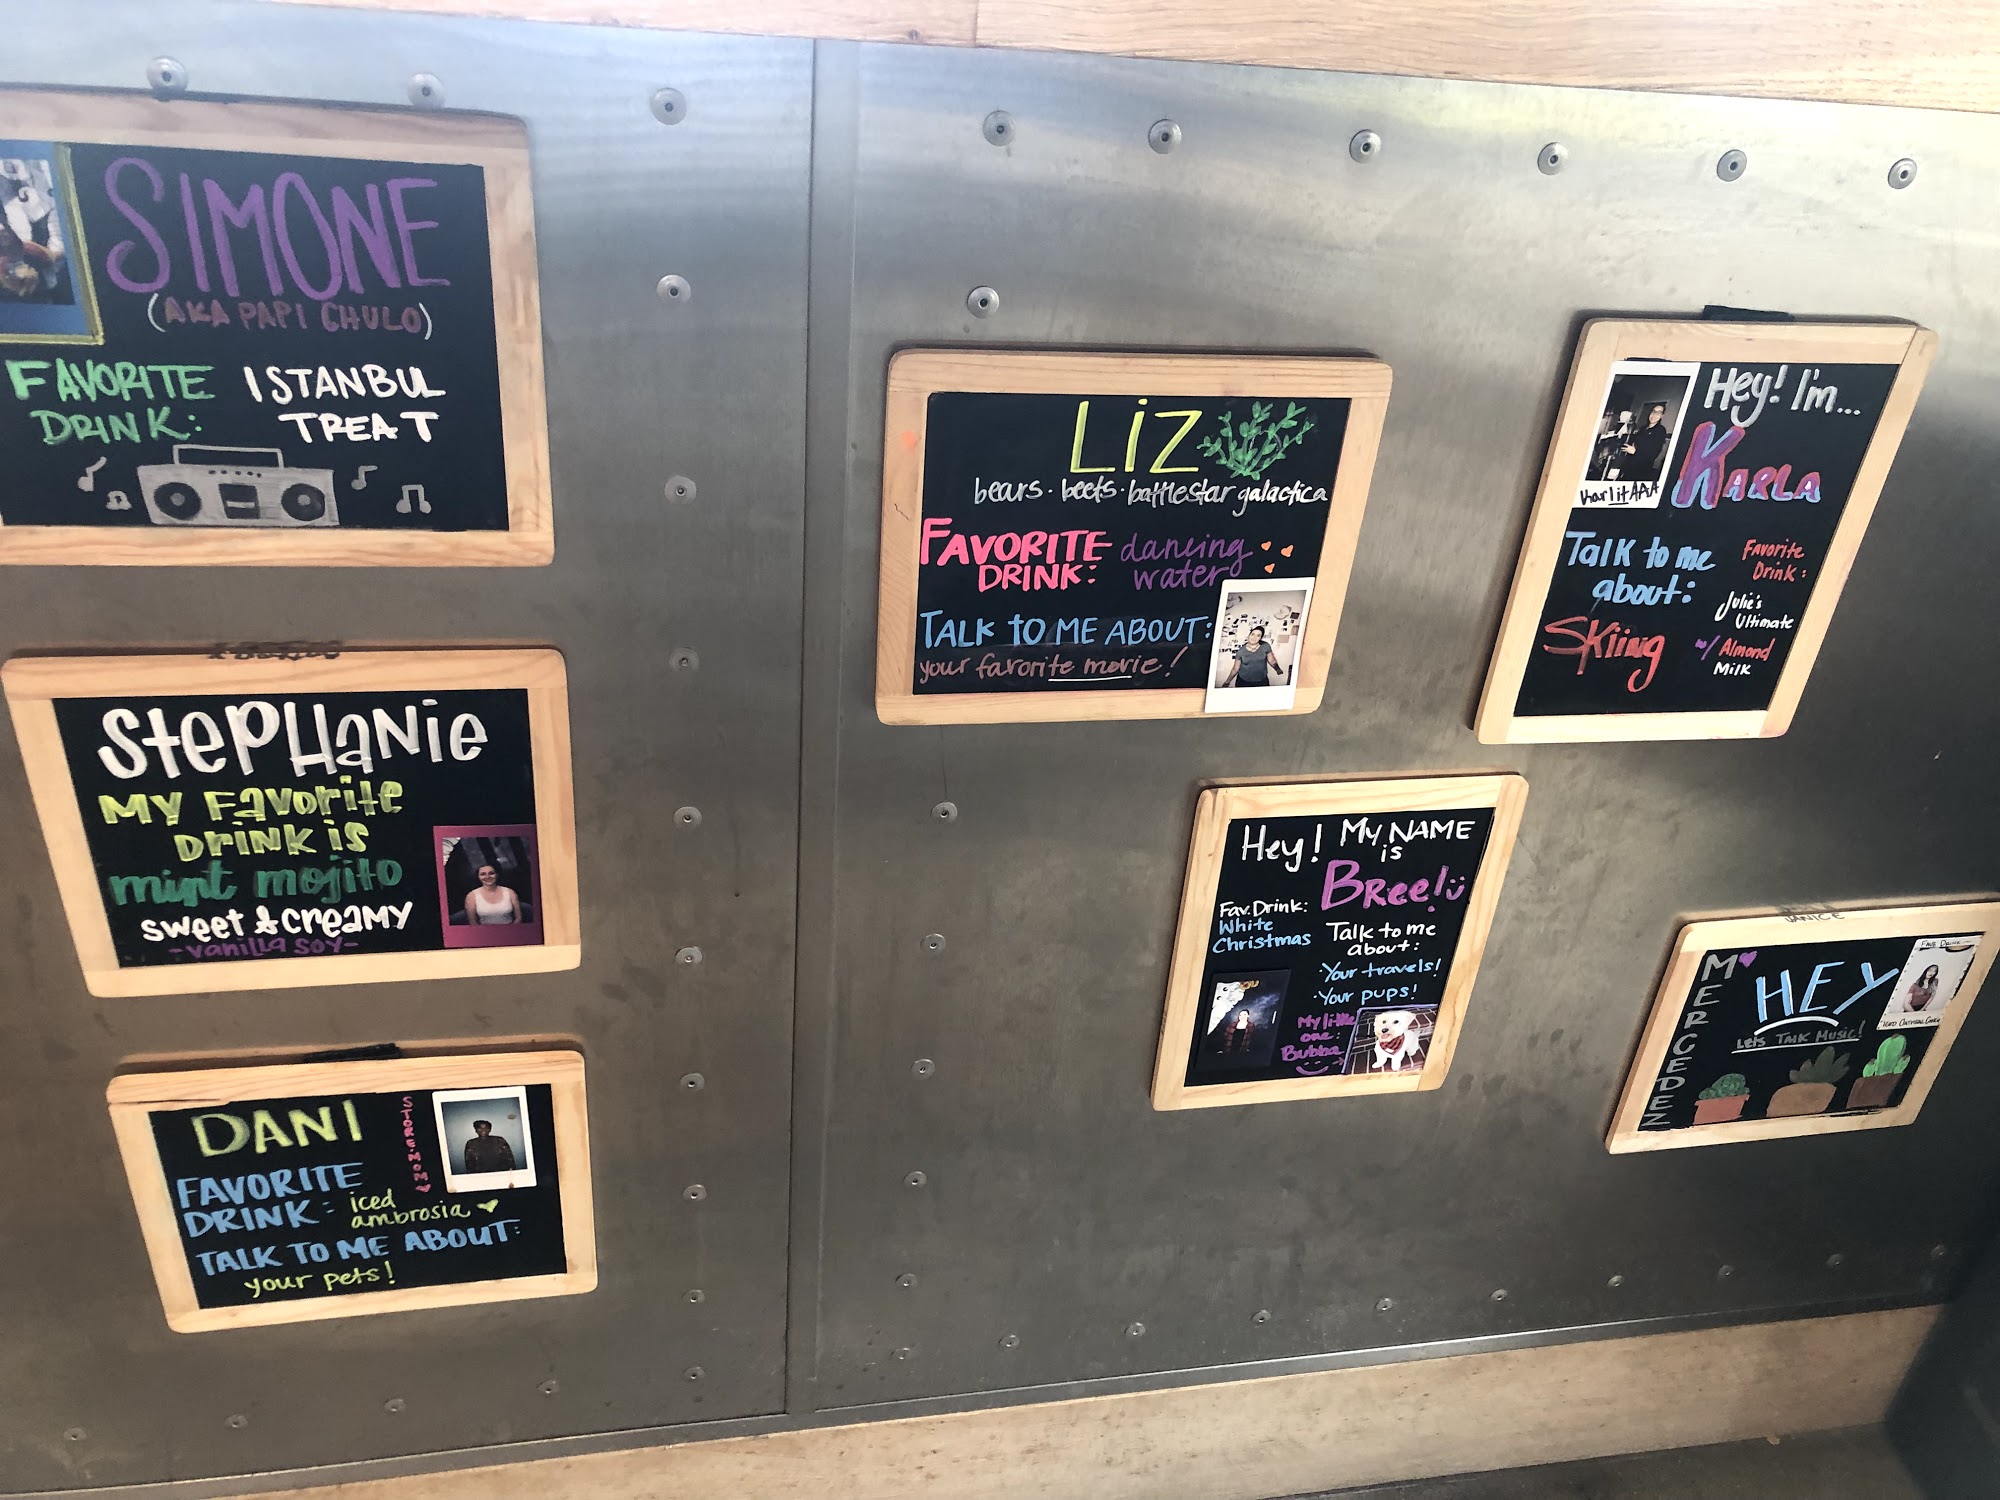 SIMONE
(AKA PAPI CHULO)
FAVORITE
DRINK:
ISTANBUL
TREAT
STEPHANIE
MY FAVORITE
DRINK IS
mint mojito
SWEET & CREAMY
-VANILLA SOY-
DANI
STORE MOM
FAVORITE
DRINK:
iced
ambrosia
TALK TO ME ABOUT:
your pets!
LiZ
bears · beets · battlestar galactica
FAVORITE
DRINK:
dancing
water
TALK to ME ABOUT:
your favorite movie!
Hey! I'm...
KARLA
KarlitAAA
Talk to me
about:
SKiing
Favorite
Drink:
Julie's
Ultimate
w/ Almond
Milk
Hey! My NAME
is
BRee!
Fav. Drink:
White
Christmas
Talk to me
about:
·Your travels!
·Your pups!
My little
one:
Bubba
JANICE
MERCEDEZ
HEY
Lets TALK MUSIC!
FAVE DRINK
ICED OATMEAL COOKIE